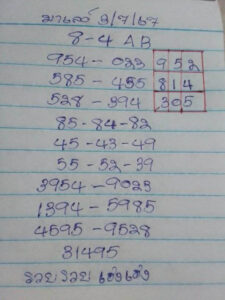 มาเลย์ 3/7/67
8-4 AB
954-033 952
585-455 814
528-394 305
85-84-82
45-43-49
55-52-39
3954-9023
1394-5985
4595-9528
31495
รวย รวย เฮงเฮง